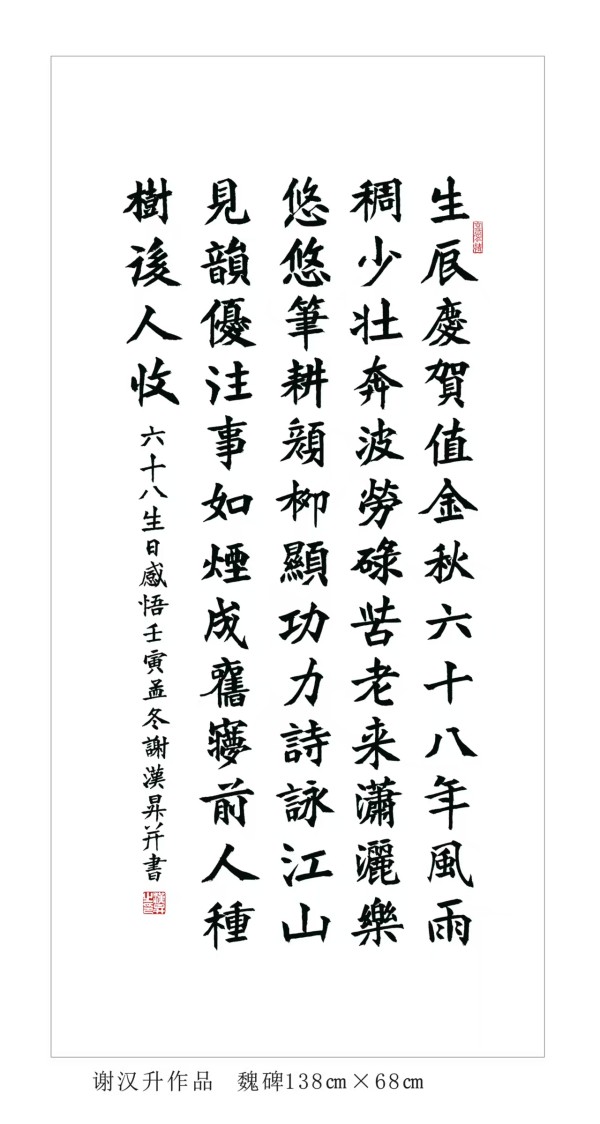 生辰慶賀值金秋六十八年風雨
稠少壯奔波勞碌苦老来瀟灑樂
悠悠筆耕顔柳顯功力詩詠江山
見韻優往事如煙成舊夢前人種
樹後人收
六十八生日感悟壬寅孟冬謝漢昇并書
谢汉升作品 魏碑138㎝×68㎝